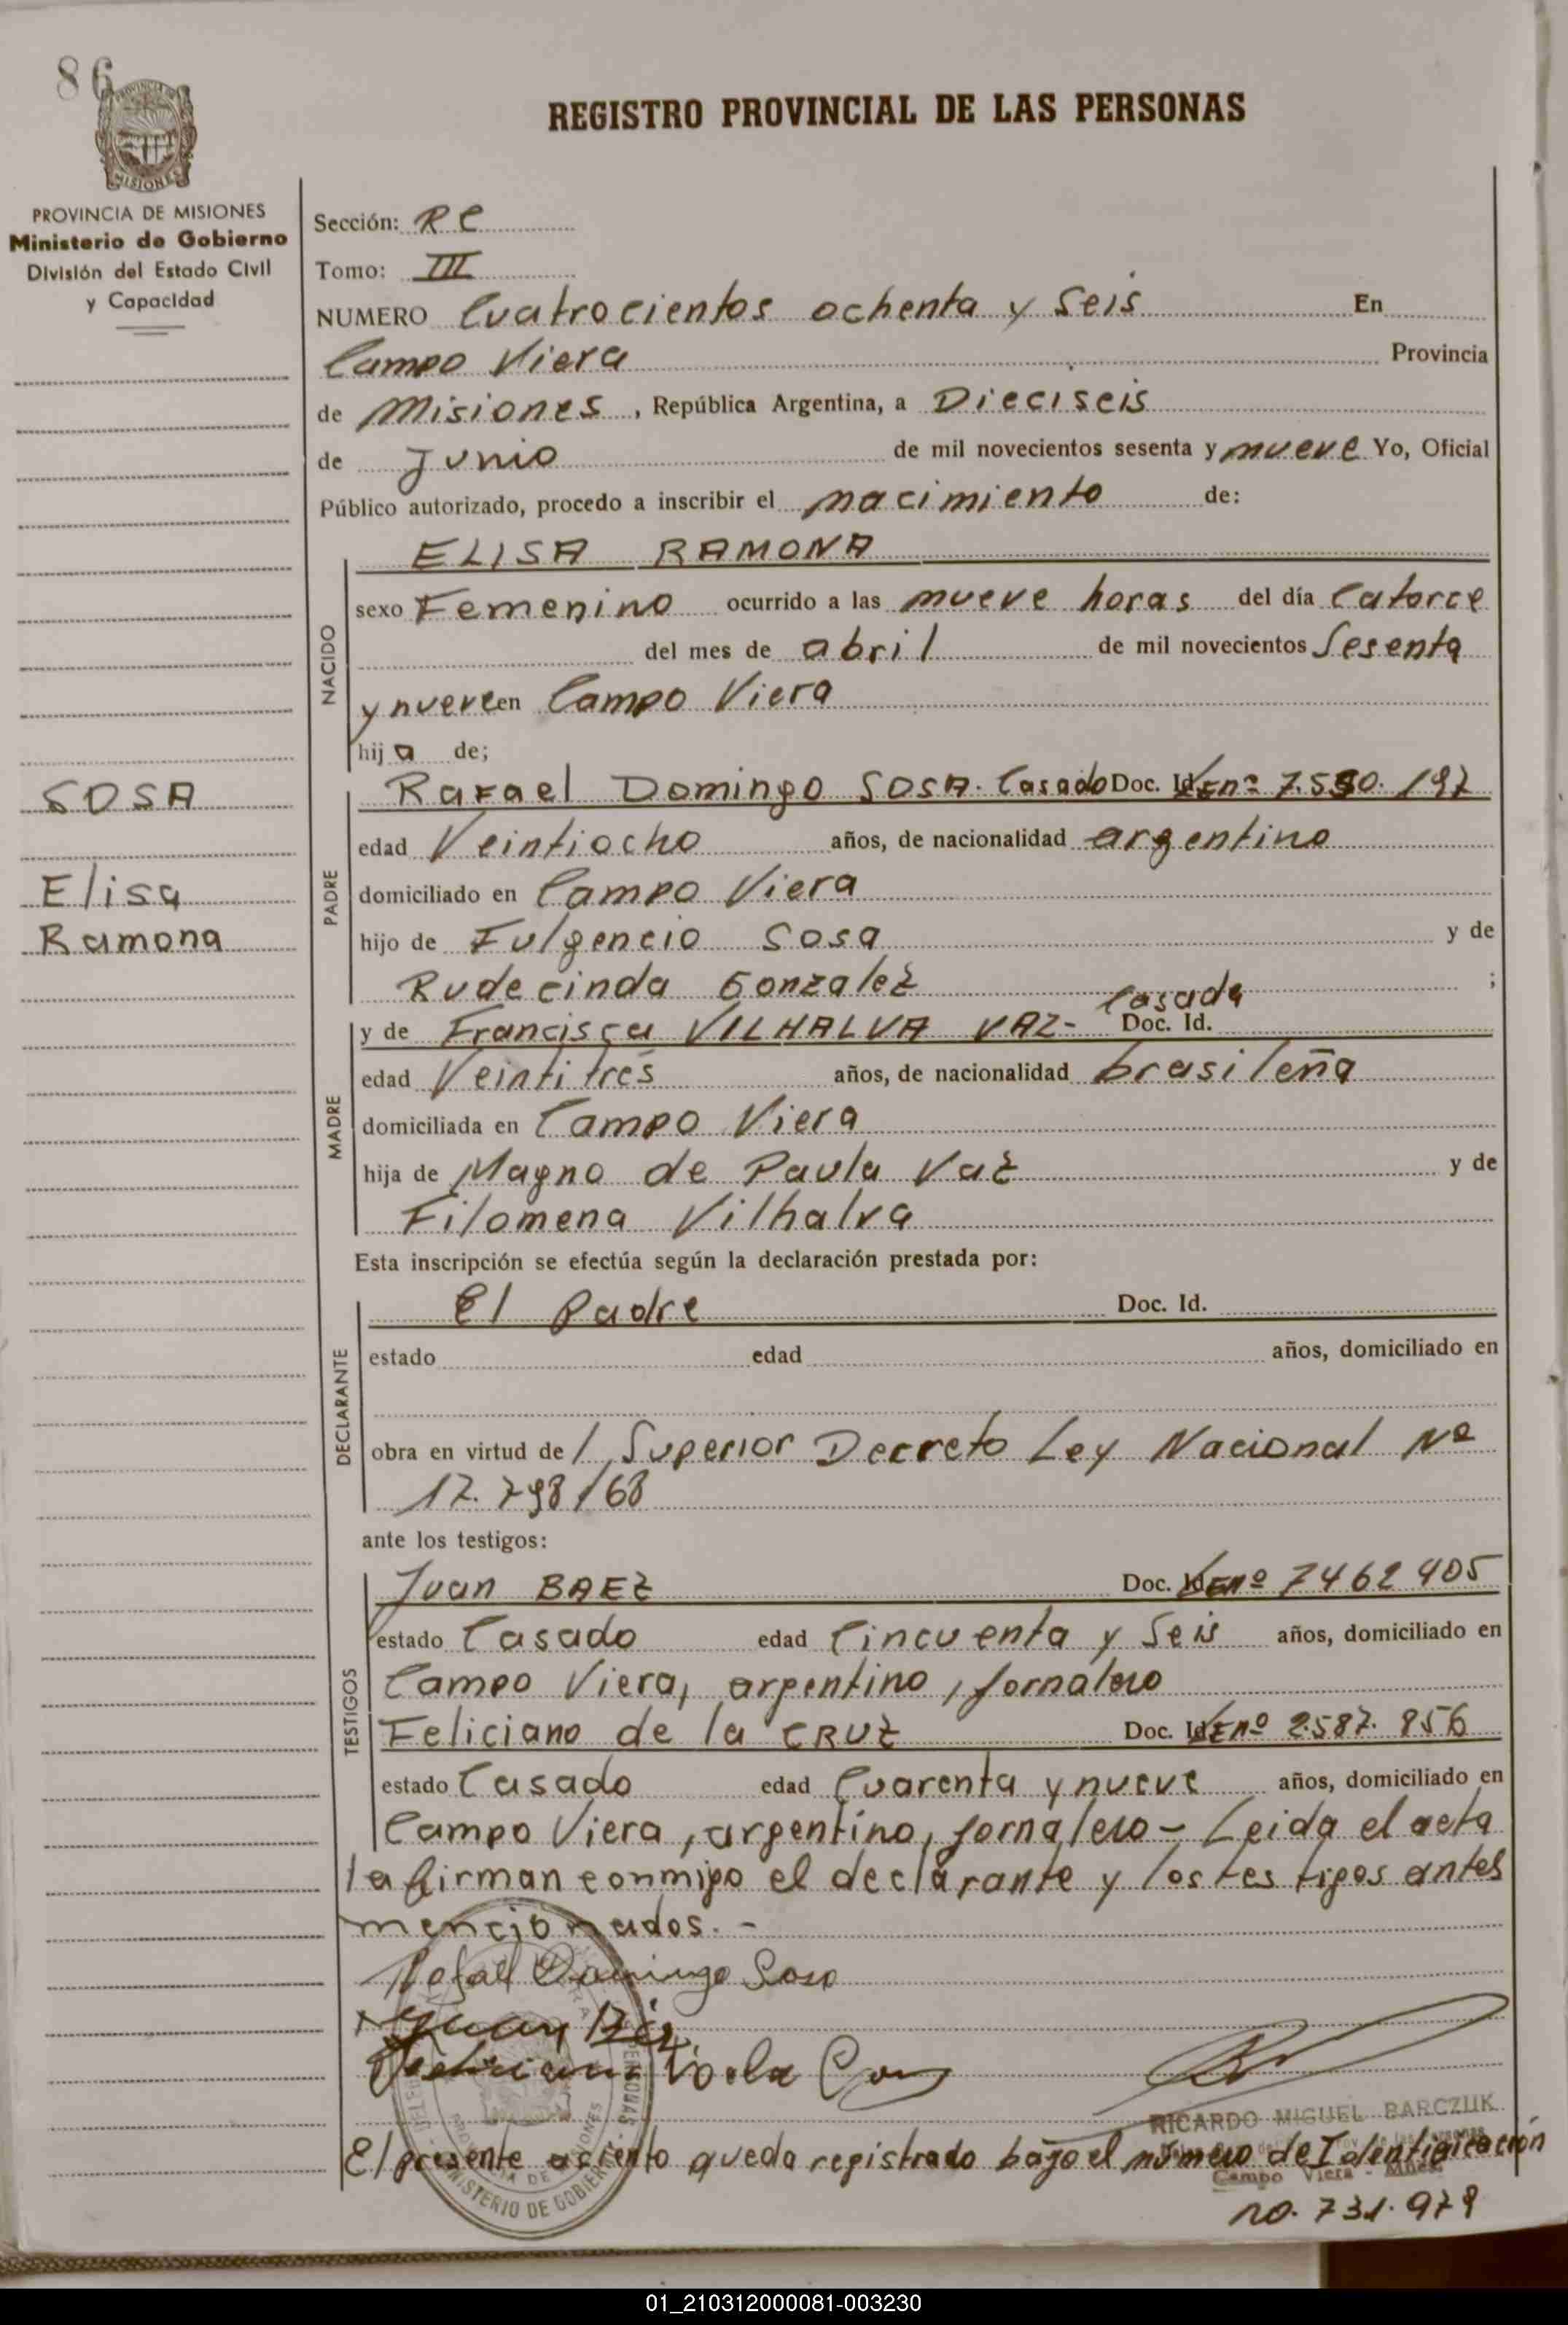 86
PROVINCIA DE MISIONES
Ministerio de Gobierno
División del Estado Civil
y Capacidad
SOSA
Elisa
Ramona
REGISTRO PROVINCIAL DE LAS PERSONAS
Sección: RC
Tomo: III
NUMERO Cuatrocientos ochenta y Seis En
Campo Viera Provincia
de Misiones, República Argentina, a Dieciseis
de Junio de mil novecientos sesenta y nueve Yo, Oficial
Público autorizado, procedo a inscribir el nacimiento de:
NACIDO
ELISA RAMONA
sexo Femenino ocurrido a las nueve horas del día Catorce
del mes de abril de mil novecientos Sesenta
y nueve en Campo Viera
hija de;
PADRE
Rafael Domingo SOSA. Casado Doc. Id. nº 7.590.197
edad Veintiocho años, de nacionalidad argentino
domiciliado en Campo Viera
hijo de Fulgencio Sosa y de
Rudecinda Gonzalez ;
MADRE
Casada
y de Francisca VILHALVA VAZ- Doc. Id.
edad Veintitrés años, de nacionalidad brasileña
domiciliada en Campo Viera
hija de Magno de Paula Vaz y de
Filomena Vilhalva
Esta inscripción se efectúa según la declaración prestada por:
DECLARANTE
El Padre Doc. Id.
estado edad años, domiciliado en
obra en virtud del Superior Decreto Ley Nacional Nº
17.798/68
ante los testigos:
TESTIGOS
Juan BAEZ Doc. Id. nº 7462405
estado Casado edad Cincuenta y Seis años, domiciliado en
Campo Viera, argentino, jornalero
Feliciano de la CRUZ Doc. Id. nº 2.587.856
estado Casado edad Cuarenta y nueve años, domiciliado en
Campo Viera, argentino, jornalero - Leida el acta
la firman conmigo el declarante y los testigos antes
mencionados. -
Rafael Domingo Sosa
RICARDO MIGUEL BARCZUK
Campo Viera - Mnes.
El presente asiento queda registrado bajo el número de Identificación
no. 731.979
MINISTERIO DE GOBIERNO
01_210312000081-003230